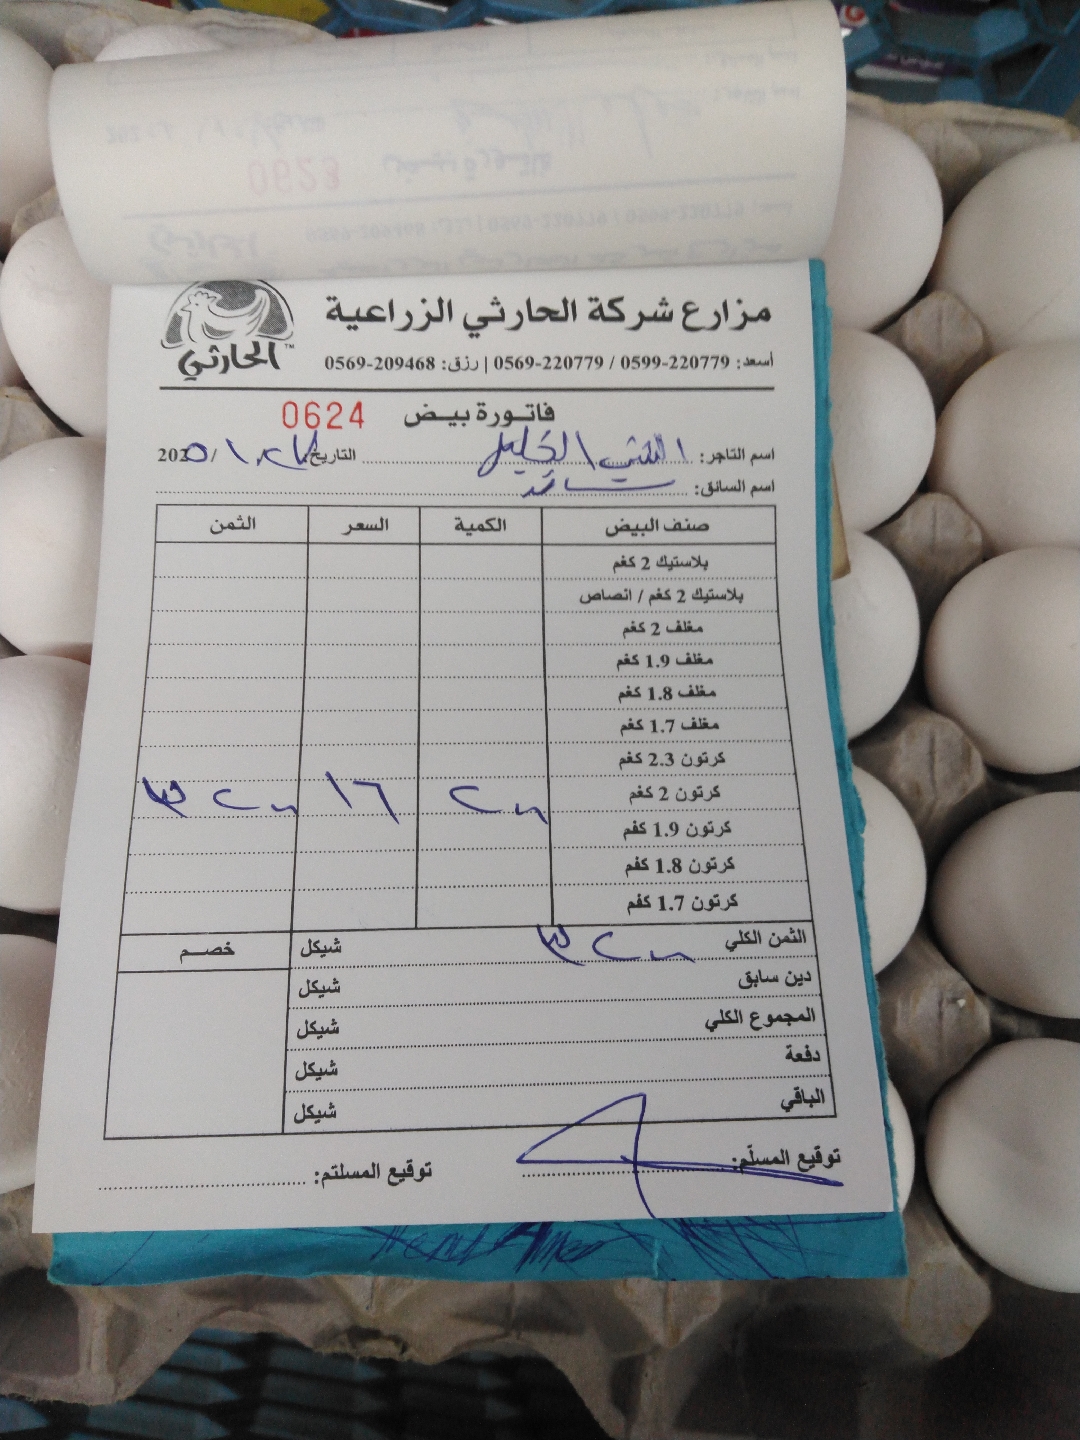 الحارثي
TM
مزارع شركة الحارثي الزراعية
أسعد: 220779-0599 / 220779-0569 | رزق: 209468-0569
فاتورة بيض 0624
اسم التاجر: الخليل التاريخ: / 202
اسم السائق:
صنف البيض الكمية السعر الثمن
بلاستيك 2 كغم
بلاستيك 2 كغم / انصاص
مغلف 2 كغم
مغلف 1.9 كغم
مغلف 1.8 كغم
مغلف 1.7 كغم
كرتون 2.3 كغم
كرتون 2 كغم ١٦
كرتون 1.9 كغم
كرتون 1.8 كغم
كرتون 1.7 كغم
الثمن الكلي شيكل خصم
دين سابق شيكل
المجموع الكلي شيكل
دفعة شيكل
الباقي شيكل
توقيع المسلّم: توقيع المستلم: